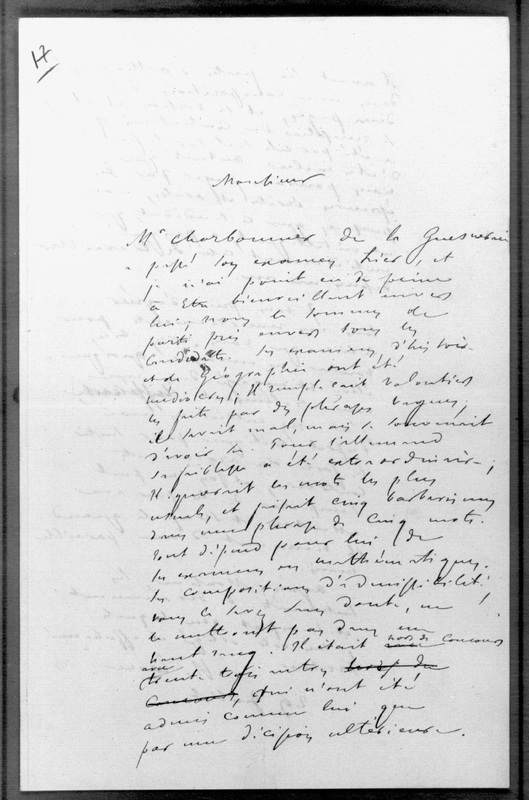 17
Monsieur
Mr Charbonnier de la Guesnerie
a passé son examen hier, et
je n'ai point eu de peine
à être bienveillant envers
lui; nous le sommes de
parti pris envers tous les
candidats. Ses examens d'histoire
et de géographie ont été
médiocres; il remplaçait volontiers
les faits par des phrases vagues;
il savait mal, mais se souvenait
d'avoir su. Pour l'allemand
sa faiblesse a été extraordinaire;
il ignorait les mots les plus
usuels, et faisait cinq barbarismes
dans une phrase de cinq mots.
Tout dépend pour lui de
ses examens en mathématiques.
Ses compositions d'admissibilité,
vous le savez sans doute, ne
le mettront pas dans un
haut rang. Il était hors de concours
avec trente trois autres hors de
concours, qui n'ont été
admis comme lui que
par une décision ultérieure.